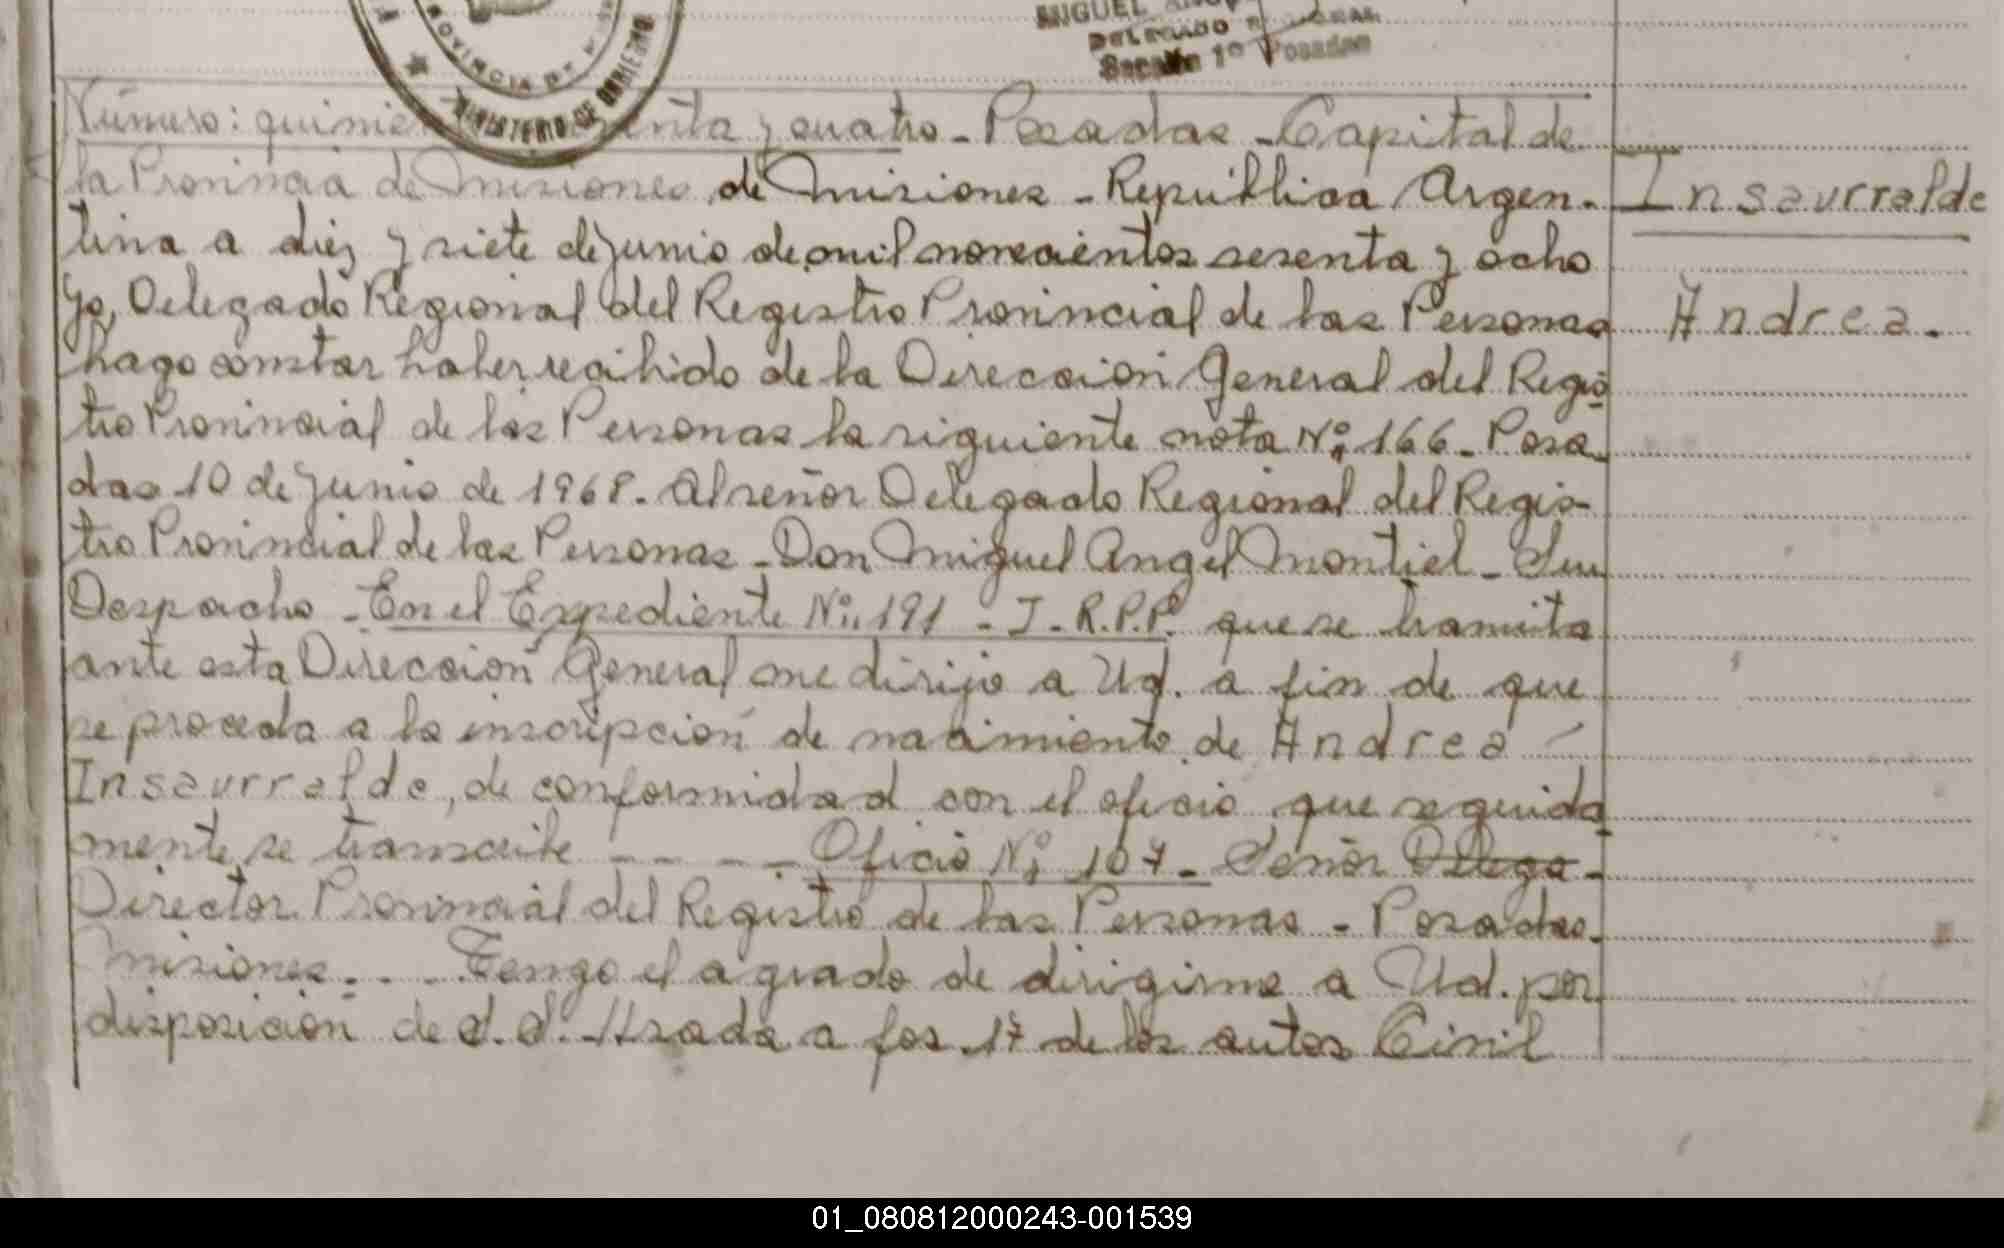 MIGUEL
DELEGADO
Sección 1º Posadas
PROVINCIA DE
MINISTERIO DE GOBIERNO
Número: y cuatro - Posadas - Capital de
la Provincia de Misiones de Misiones - República Argen-
tina a diez y siete de junio de mil novecientos sesenta y ocho
Yo, Delegado Regional del Registro Provincial de las Personas
hago constar haber recibido de la Dirección General del Regis
tro Provincial de las Personas la siguiente nota Nº 166 - Posa-
das 10 de junio de 1968. Al señor Delegado Regional del Regis-
tro Provincial de las Personas - Don Miguel Angel Montiel - Su
Despacho - En el Expediente Nº 191 - J - R.P.P. que se tramita
ante esta Dirección General me dirijo a Ud. a fin de que
se proceda a la inscripción de nacimiento de Andrea
Insaurralde, de conformidad con el oficio que seguida
mente se transcribe - - - - Oficio Nº 107 - Señor Delega -
Director Provincial del Registro de las Personas - Posadas -
Misiones. - - Tengo el agrado de dirigirme a Ud. por
disposición de S.S. dada a fos. 17 de los autos Civil
Insaurralde
Andrea.
01_080812000243-001539